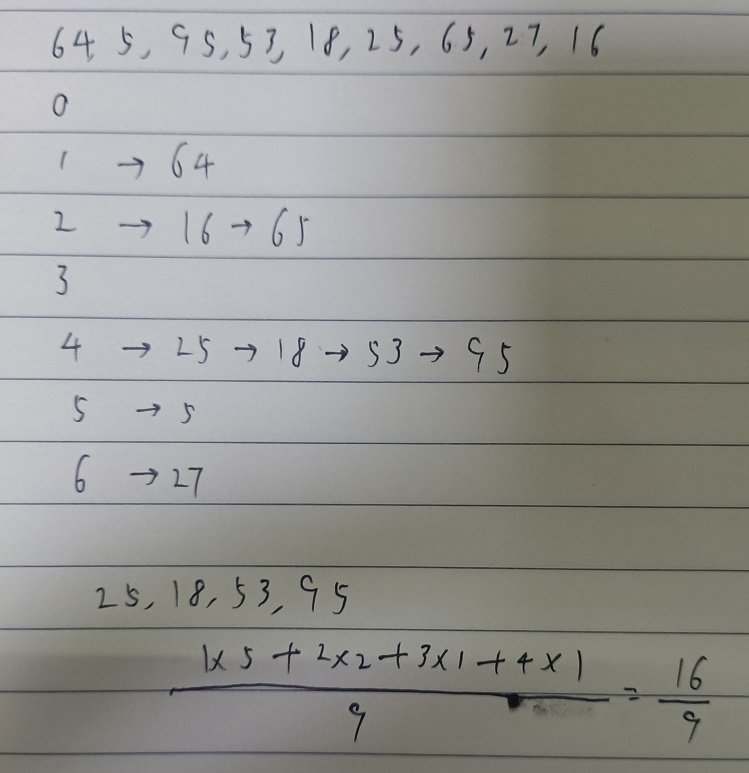 64 5, 95, 53, 18, 25, 65, 27, 16
0
1 → 64
2 → 16 → 65
3
4 → 25 → 18 → 53 → 95
5 → 5
6 → 27
25, 18, 53, 95
1×5 + 2×2 + 3×1 + 4×1 / 9 = 16/9